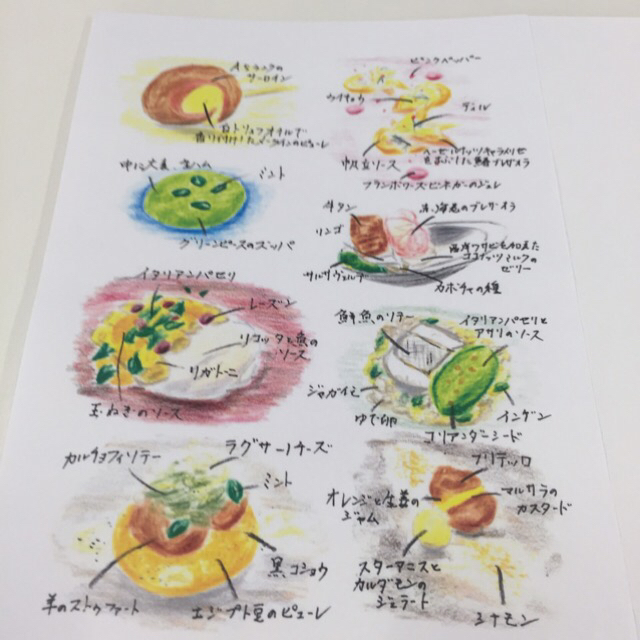 サーロイン
白トリュフオイルで
ピンクペッパー
ウイキョウ
ディル
帆立ソース
フランボワーズビネガーのジュレ
中に大麦 生ハム
ミント
グリーンピースのズッパ
牛タン
リンゴ
サルサヴェルデ
カボチャの種
ココナッツミルクの
ゼリー
イタリアンパセリ
レーズン
リコッタと魚の
ソース
リガトーニ
玉ねぎのソース
鮮魚のソテー
イタリアンパセリと
アサリのソース
ジャガイモ
ゆで卵
インゲン
コリアンダーシード
カルチョフィソテー
ラグサーノチーズ
ミント
黒コショウ
羊のストゥファート
エジプト豆のピューレ
フリテッロ
オレンジと生姜の
ジャム
マルサラの
カスタード
スターアニスと
カルダモンの
ジェラート
シナモン